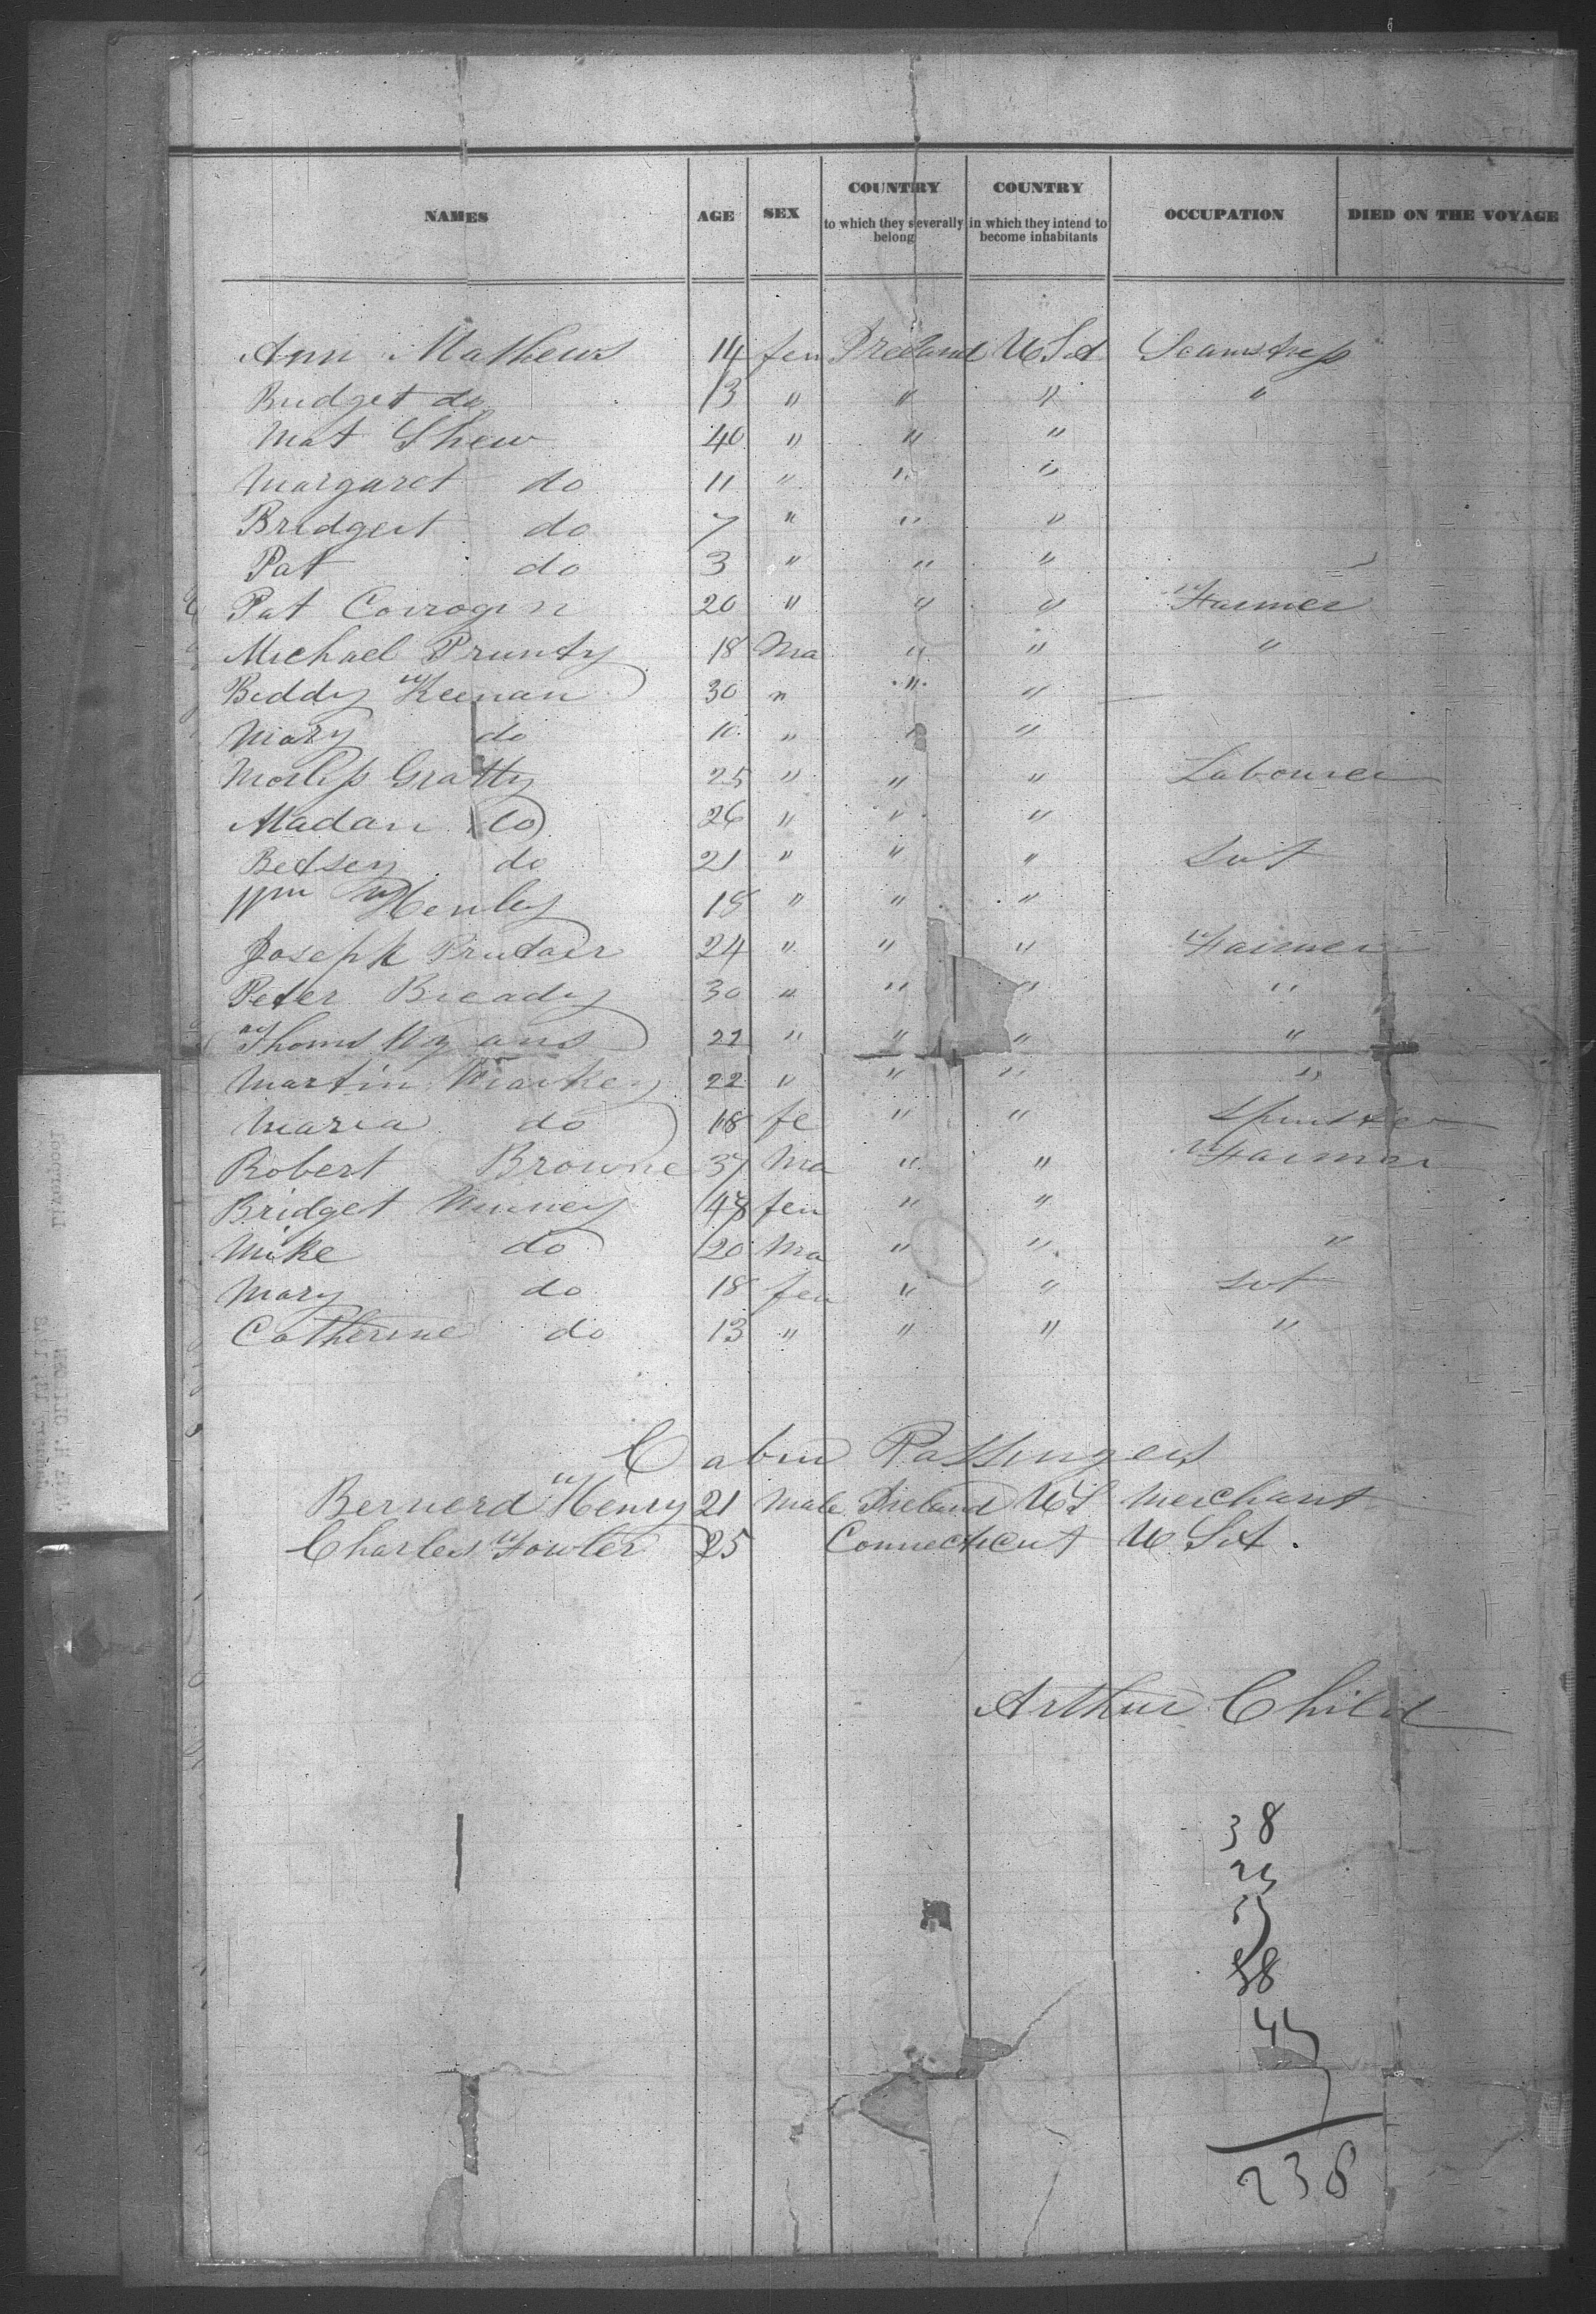 NAMES AGE SEX COUNTRY to which they severally belong COUNTRY in which they intend to become inhabitants OCCUPATION DIED ON THE VOYAGE
Ann Mathews 14 fem Ireland U S A Seamstress
Bridget do 13 " " " "
Mat Shew 40 " " "
Margaret do 11 " " "
Bridget do 7 " " "
Pat do 3 " " "
Pat Corrogin 20 " " " Farmer
Michael Prunty 18 Ma " " "
Biddy Keenan 30 " " "
Mary do 10 " " "
Gratty 25 " " " Labourer
Madan do 26 " " "
Betsey do 21 " " " Svt
Wm Henley 18 " " "
Joseph 24 " " " Farmer
Peter Bready 30 " " " "
Thoms 22 " " " "
Martin Markey 22 " " " "
Maria do 18 fe " " Spinster
Robert Browne 37 Ma " " Farmer
Bridget 48 fem " "
Mike do 20 Ma " " "
Mary do 18 fem " " Svt
Catherine do 13 " " " "
Cabin Passengers
Bernerd Henry 21 Male Ireland U S Merchant
Charles Fowler 25 Connecticut U S A.
Arthur Child
38
38
238